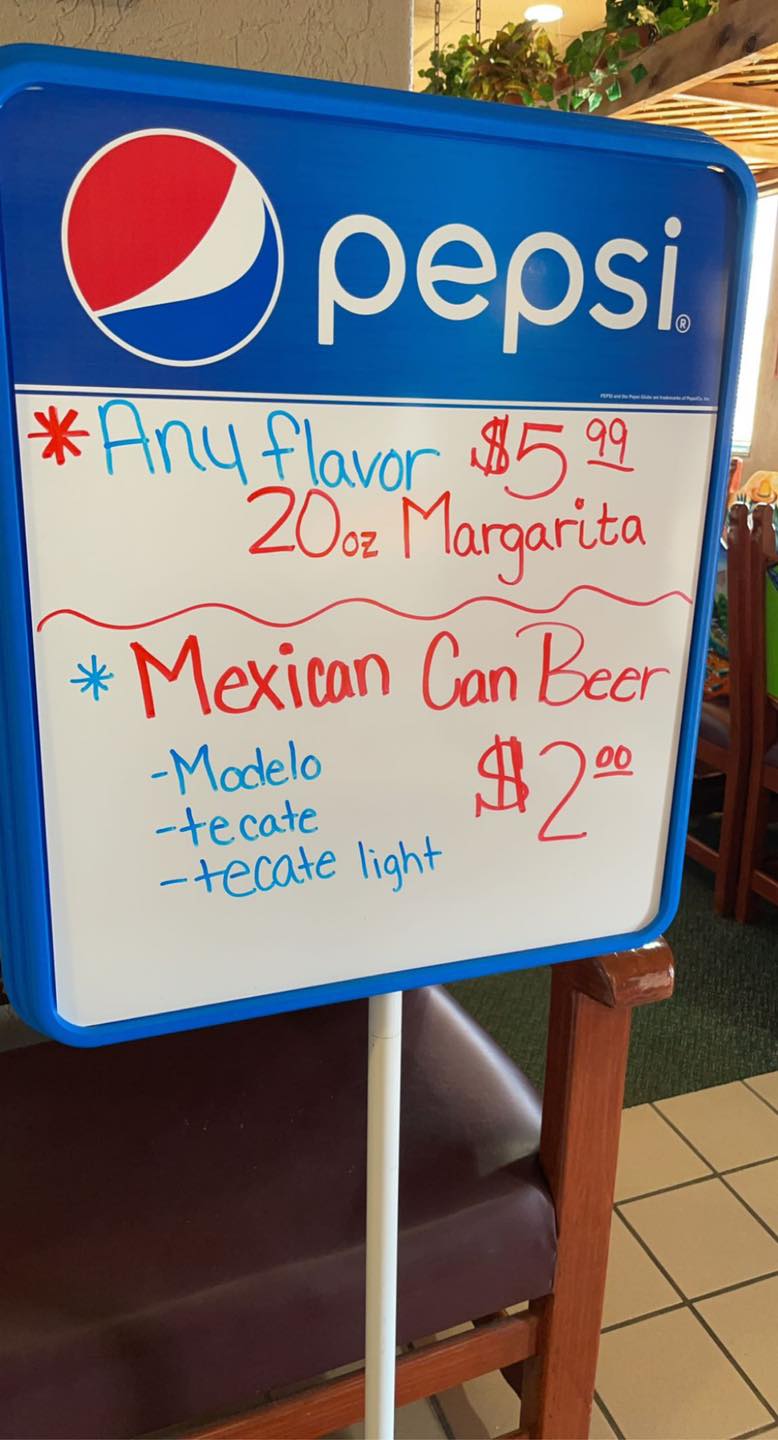 pepsi®
PEPSI and the Pepsi Globe are trademarks of PepsiCo, Inc.
*Any flavor $5 99
20oz Margarita
*Mexican Can Beer
-Modelo $2 00
-tecate
-tecate light